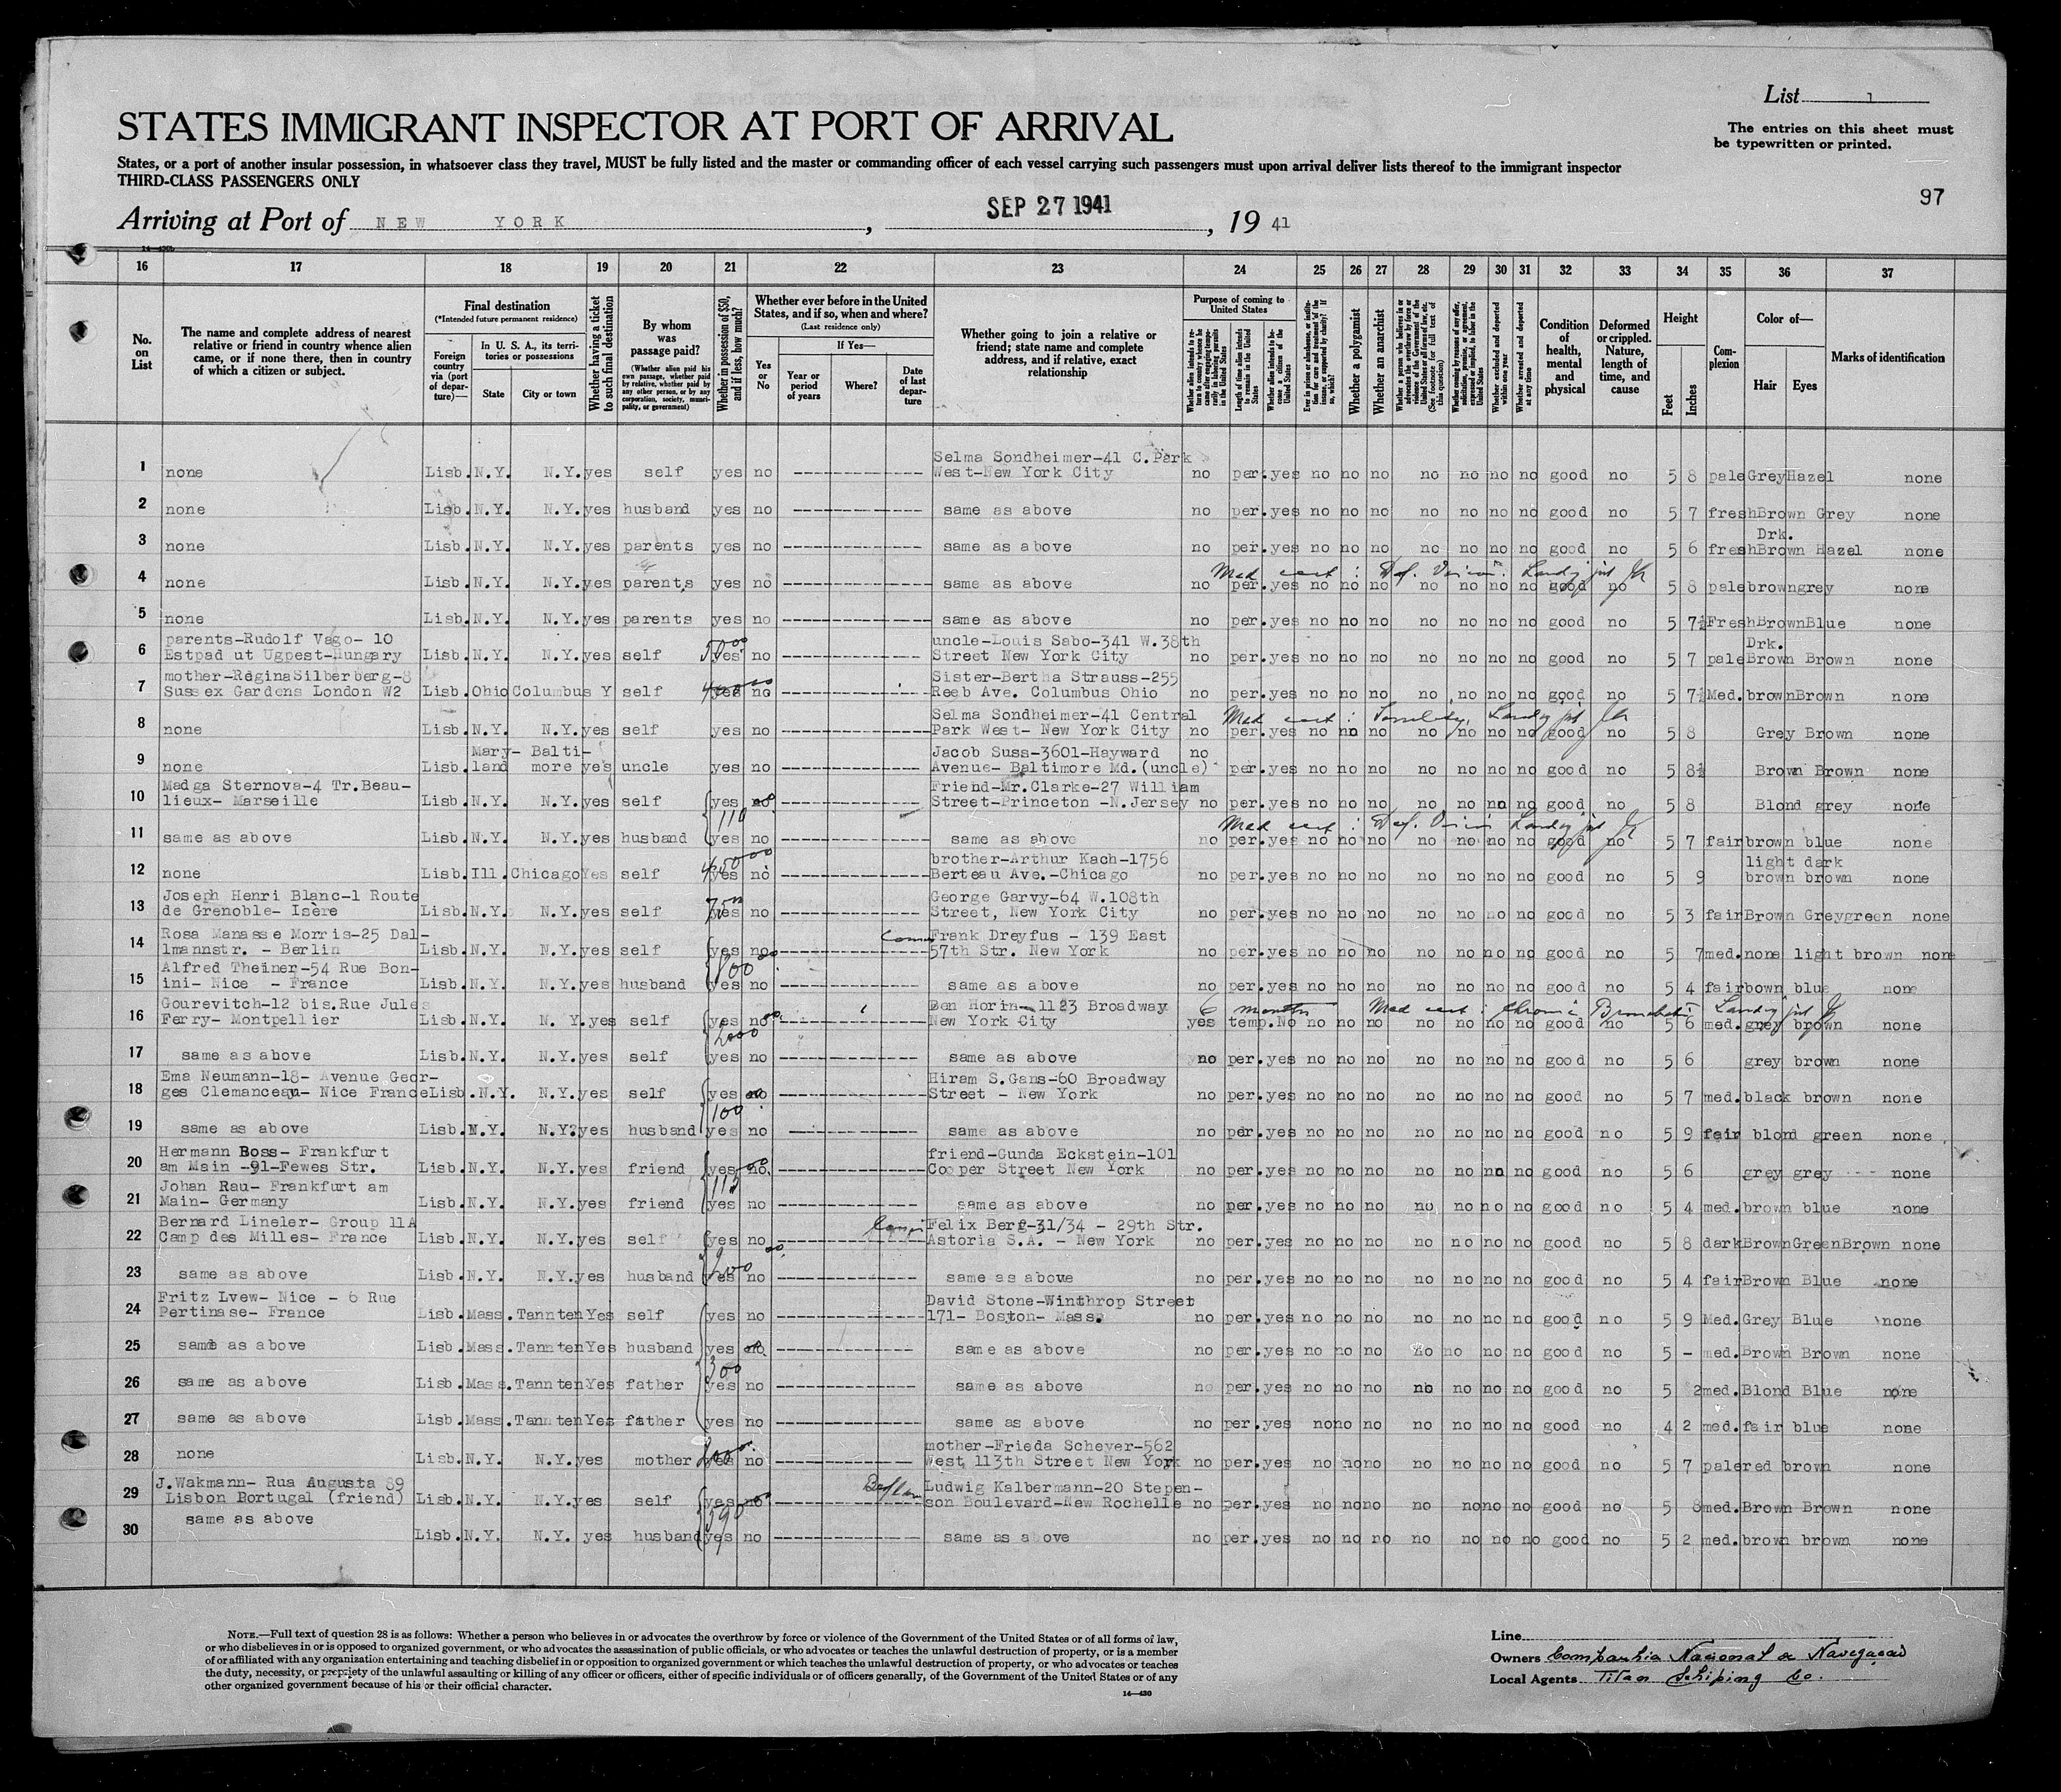 List 1
The entries on this sheet must
be typewritten or printed.
STATES IMMIGRANT INSPECTOR AT PORT OF ARRIVAL
States, or a port of another insular possession, in whatsoever class they travel, MUST be fully listed and the master or commanding officer of each vessel carrying such passengers must upon arrival deliver lists thereof to the immigrant inspector
THIRD-CLASS PASSENGERS ONLY
97
Arriving at Port of NEW YORK, SEP 27 1941, 19 41
16 17 18 19 20 21 22 23 24 25 26 27 28 29 30 31 32 33 34 35 36 37
No. on List
The name and complete address of nearest relative or friend in country whence alien came, or if none there, then in country of which a citizen or subject.
Final destination
(*Intended future permanent residence)
Foreign country via (port of departure)—
In U. S. A., its territories or possessions
State
City or town
Whether having a ticket to such final destination
By whom was passage paid?
(Whether alien paid his own passage, whether paid by relative, whether paid by any other person, or by any corporation, society, municipality, or government)
Whether in possession of $50, and if less, how much?
Whether ever before in the United States, and if so, when and where?
(Last residence only)
Yes or No
If Yes—
Year or period of years
Where?
Date of last departure
Whether going to join a relative or friend; state name and complete address, and if relative, exact relationship
Purpose of coming to United States
Length of time alien intends to remain in the United States
Whether alien intends to become a citizen of the United States
Whether a polygamist
Whether an anarchist
Whether excluded and deported within one year
Whether arrested and deported at any time
Condition of health, mental and physical
Deformed or crippled. Nature, length of time, and cause
Height
Feet
Inches
Complexion
Color of—
Hair
Eyes
Marks of identification
1 none Lisb. N.Y. N.Y. yes self yes no Selma Sondheimer-41 C.Park West-New York City no per. yes no no no no no no no good no 5 8 pale Grey Hazel none
2 none Lisb. N.Y. N.Y. yes husband yes no same as above no per. yes no no no no no no no good no 5 7 fresh Brown Grey none
3 none Lisb. N.Y. N.Y. yes parents yes no same as above no per. yes no no no no no no no good no 5 6 fresh Drk. Brown Hazel none
4 none Lisb. N.Y. N.Y. yes parents yes no same as above Med cert: Def. Vision. no per. yes no no no no no no no good no 5 8 pale brown grey none
5 none Lisb. N.Y. N.Y. yes parents yes no same as above no per. yes no no no no no no no good no 5 7½ Fresh Brown Blue none
6 parents-Rudolf Vago- 10 Estpad ut Ugpest-Hungary Lisb. N.Y. N.Y. yes self yes no uncle-Louis Sabo-341 W.38th Street New York City no per. yes no no no no no no no good no 5 7 pale Drk. Brown Brown none
7 mother-ReginaSilberberg-8 Sussex Gardens London W2 Lisb. Ohio Columbus Y self yes no Sister-Bertha Strauss-255 Reeb Ave. Columbus Ohio no per. yes no no no no no no no good no 5 7½ Med. brown Brown none
8 none Lisb. N.Y. N.Y. yes self yes no Selma Sondheimer-41 Central Park West- New York City Med cert: Senility. no per. yes no no no no no no no good no 5 8 Grey Brown none
9 none Lisb. Mary-land Balti-more yes uncle yes no Jacob Suss-3601-Hayward Avenue- Baltimore Md.(uncle) no per. yes no no no no no no no good no 5 8½ Brown Brown none
10 Madga Sternova-4 Tr.Beau-lieux- Marseille Lisb. N.Y. N.Y. yes self yes no Friend-Mr.Clarke-27 William Street-Princeton -N.Jersey no per. yes no no no no no no no good no 5 8 Blond grey none
11 same as above Lisb. N.Y. N.Y. yes husband 110 yes no same as above Med cert: Def. Vision no per. yes no no no no no no no good no 5 7 fair brown blue none
12 none Lisb. Ill. Chicago Yes self yes no brother-Arthur Kach-1756 Berteau Ave.-Chicago no per. yes no no no no no no no good no 5 9 light brown dark brown none
13 Joseph Henri Blanc-1 Route de Grenoble- Isère Lisb. N.Y. N.Y. yes self yes no George Garvy-64 W.108th Street, New York City no per. yes no no no no no no no good no 5 3 fair Brown Greygreen none
14 Rosa Manasse Morris-25 Dal-lmannstr. - Berlin Lisb. N.Y. N.Y. yes self yes no Frank Dreyfus - 139 East 57th Str. New York no per. yes no no no no no no no good no 5 7 med. none light brown none
15 Alfred Theiner-54 Rue Bon-ini- Nice - France Lisb. N.Y. N.Y. yes husband 800 yes no same as above no per. yes no no no no no no no good no 5 4 fair bown blue none
16 Gourevitch-12 bis.Rue Jules Ferry- Montpellier Lisb. N.Y. N.Y. yes self yes no Ben Horin- 1123 Broadway New York City 6 months Med cert: Chronic Bronchitis yes temp. No no no no no no no no good no 5 6 med. grey brown none
17 same as above Lisb. N.Y. N.Y. yes self 2000 yes no same as above no per. yes no no no no no no no good no 5 6 grey brown none
18 Ema Neumann-18- Avenue Geor-ges Clemanceau- Nice France Lisb. N.Y. N.Y. yes self yes no Hiram S.Gans-60 Broadway Street - New York no per. yes no no no no no no no good no 5 7 med. black brown none
19 same as above Lisb. N.Y. N.Y. yes husband 100 yes no same as above no per. yes no no no no no no no good no 5 9 fair blond green none
20 Hermann Boss- Frankfurt am Main -91-Fewes Str. Lisb. N.Y. N.Y. yes friend yes no friend-Gunda Eckstein-101 Cooper Street New York no per. yes no no no no no no no good no 5 6 grey grey none
21 Johan Rau- Frankfurt am Main- Germany Lisb. N.Y. N.Y. yes friend 115 yes no same as above no per. yes no no no no no no no good no 5 4 med. brown blue none
22 Bernard Lineler- Group 11A Camp des Milles- France Lisb. N.Y. N.Y. yes self yes no Felix Berg-31/34 - 29th Str. Astoria S.A. - New York no per. yes no no no no no no no good no 5 8 dark BrownGreenBrown none
23 same as above Lisb. N.Y. N.Y. yes husband yes no same as above no per. yes no no no no no no no good no 5 4 fair Brown Blue none
24 Fritz Lvew- Nice - 6 Rue Pertinase- France Lisb. Mass. Tannten Yes self yes no David Stone-Winthrop Street 171- Boston- Mass. no per. yes no no no no no no no good no 5 9 Med. Grey Blue none
25 same as above Lisb. Mass. Tannten Yes husband yes no same as above no per. yes no no no no no no no good no 5 - med. Brown Brown none
26 same as above Lisb. Mass. Tannten Yes father 300 yes no same as above no per. yes no no no no no no no good no 5 2 med. Blond Blue none
27 same as above Lisb. Mass. Tannten Yes father yes no same as above no per. yes no no no no no no no good no 4 2 med. fair blue none
28 none Lisb. N.Y. N.Y. yes mother yes no mother-Frieda Scheyer-562 West 113th Street New York no per. yes no no no no no no no good no 5 7 pale red brown none
29 J.Wakmann- Rua Augusta 89 Lisbon Portugal (friend) Lisb. N.Y. N.Y. yes self yes no Ludwig Kalbermann-20 Stepen-son Boulevard-New Rochelle no per. yes no no no no no no no good no 5 8 med. Brown Brown none
30 same as above Lisb. N.Y. N.Y. yes husband 590 yes no same as above no per. yes no no no no no no no good no 5 2 med. brown brown none
NOTE.—Full text of question 28 is as follows: Whether a person who believes in or advocates the overthrow by force or violence of the Government of the United States or of all forms of law,
or who disbelieves in or is opposed to organized government, or who advocates the assassination of public officials, or who advocates or teaches the unlawful destruction of property, or is a member
of or affiliated with any organization entertaining and teaching disbelief in or opposition to organized government or which teaches the unlawful destruction of property, or who advocates or teaches
the duty, necessity, or propriety of the unlawful assaulting or killing of any officer or officers, either of specific individuals or of officers generally, of the Government of the United States or of any
other organized government because of his or their official character.
14—430
Line
Owners Companhia Nacional de Navegacao
Local Agents Titan Shiping Co.